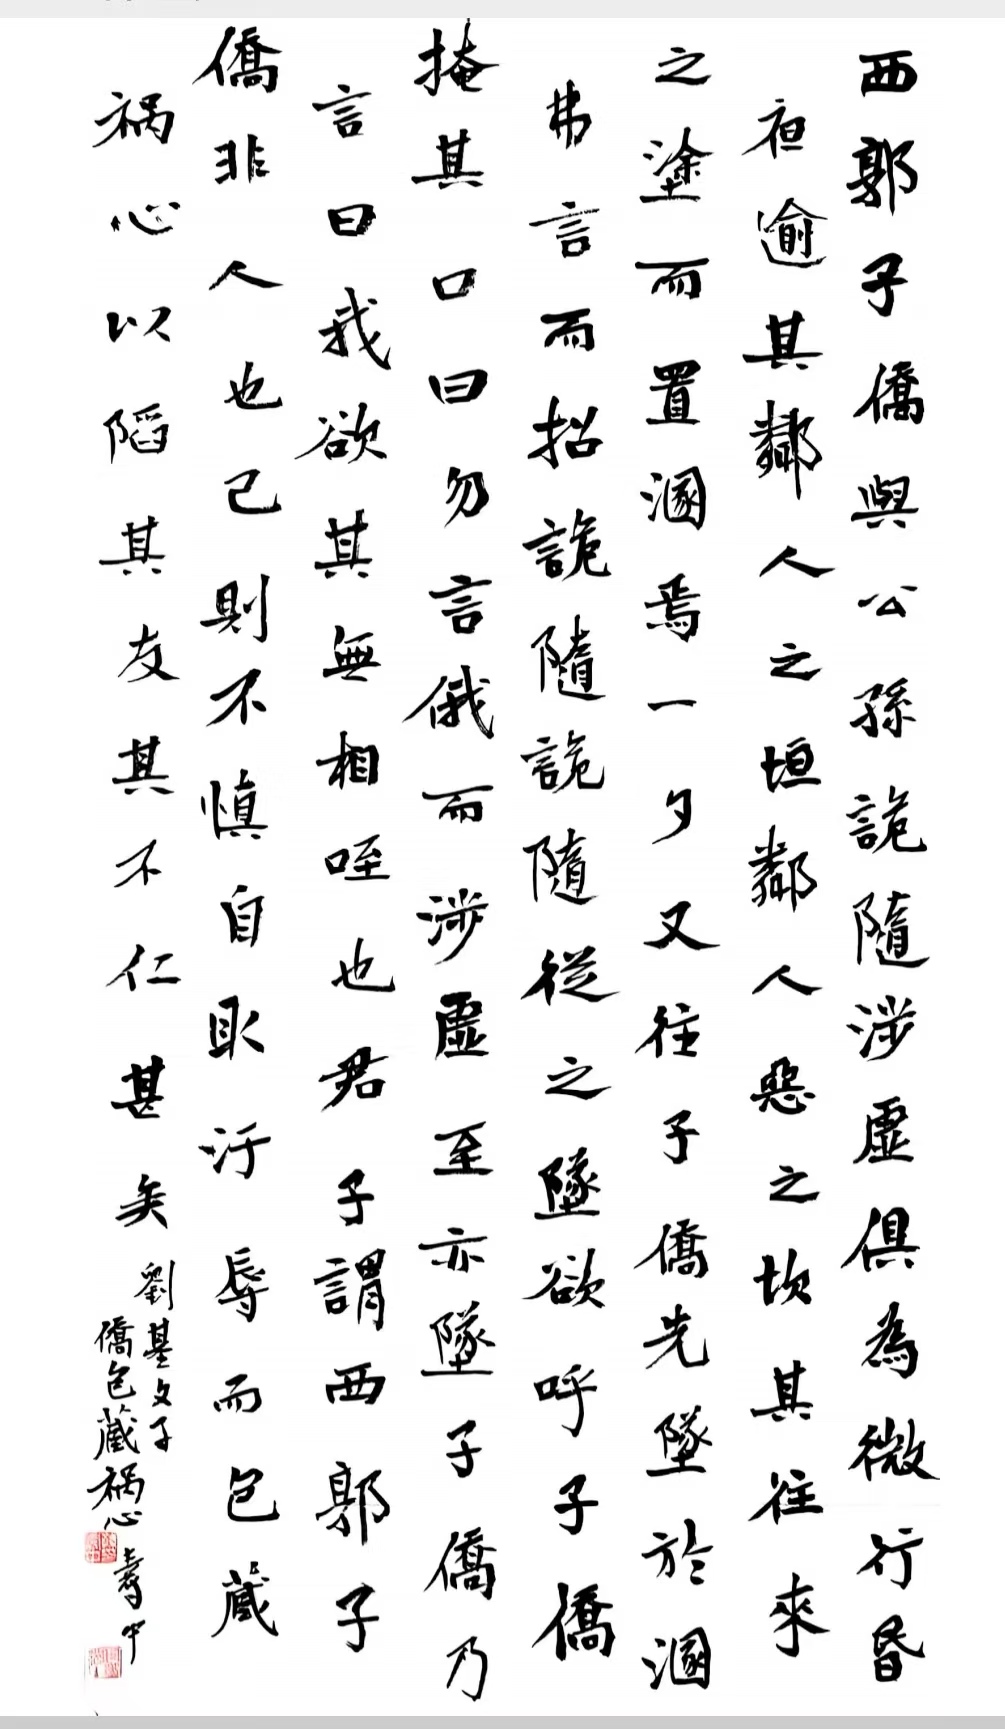 西郭子僑與公孫詭隨涉虛俱為微行昏
夜逾其鄰人之垣鄰人惡之坎其往來
之塗而置溷焉一夕又往子僑先墜於溷
弗言而招詭隨詭隨從之墜欲呼子僑
掩其口曰勿言俄而涉虛至亦墜子僑乃
言曰我欲其無相咥也君子謂西郭子
僑非人也己則不慎自取汙辱而包藏
祸心以陷其友其不仁甚矣
劉基文子
僑包藏祸心
壽中